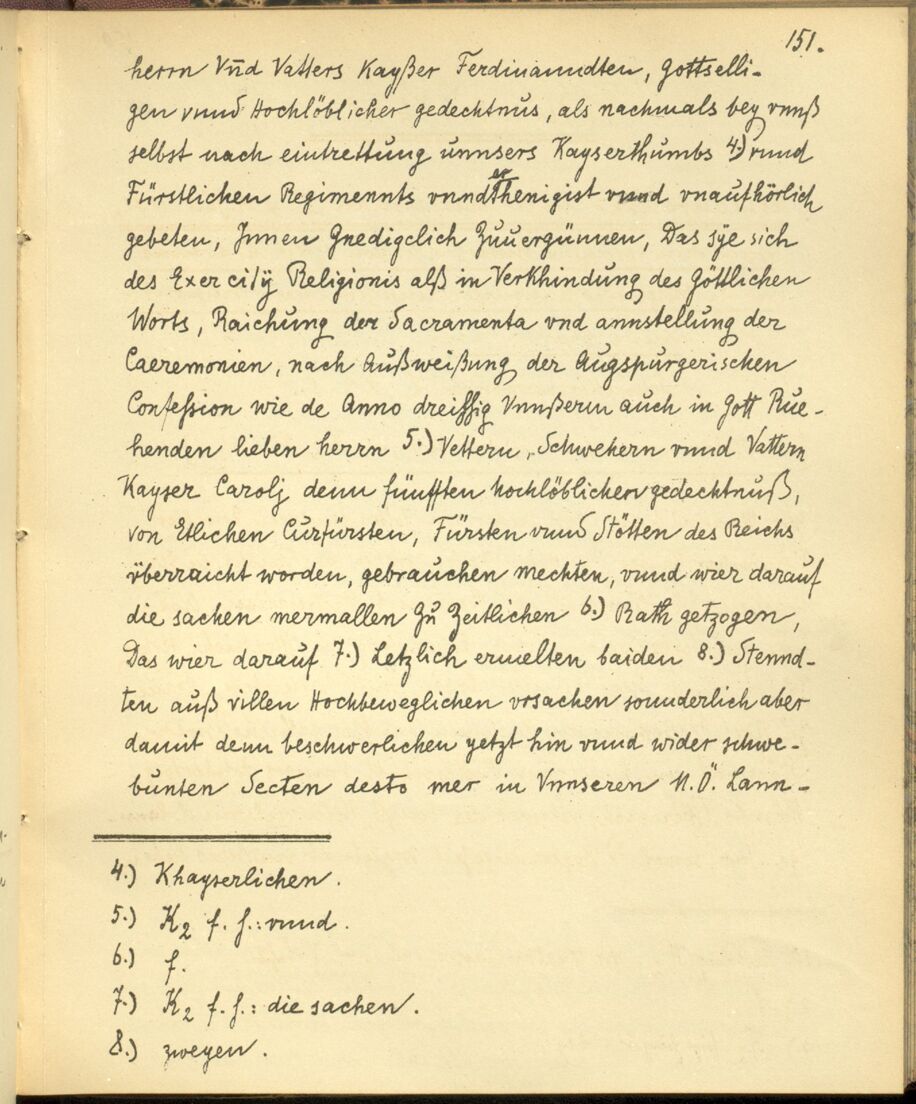 151.
herrn Vn̄d Vatters Kayßer Ferdinanndten, gottselli-
gen vnnd Hochlöblicher gedechtnus, als nachmals bey vnnß
selbst nach eintrettung unnsers Kayserthumbs 4.) vnnd
Fürstlichen Regimennts vnndterthenigist vnnd vnaufhörlich
gebeten, Innen Gnedigclich Zuuergünnen, Das sye sich
des Exercitÿ Religionis alß in Verkhindung des Göttlichen
Worts, Raichung der Sacramenta vnd annstellung der
Caeremonien, nach Außweißung der Augspurgerischen
Confession wie de Anno dreissig Vnnßerm auch in Gott Rue-
henden lieben herrn 5.) Vettern, Schwehern vnnd Vattern
Kayser Carolj denn fünfften hochlöblichen gedechtnuß,
von Etlichen Curfürsten, Fürsten vnnd Stötten des Reichs
überraicht worden, gebrauchen mechten, vnnd wier darauf
die sachen mermallen Zu Zeitlichen 6.) Rath getzogen,
Das wier darauf 7.) Letzlich ermelten baiden 8.) Stennd-
ten auß villen Hochbeweglichen vrsachen sonnderlich aber
damit denn beschwerlichen yetzt hin vnnd wider schwe-
bunten Secten desto mer in Vnnseren N.Ö. Lann-
4.) Khayserlichen.
5.) K2 f. h.: vnnd.
6.) f.
7.) K2 f. h.: die sachen.
8.) zweyen.